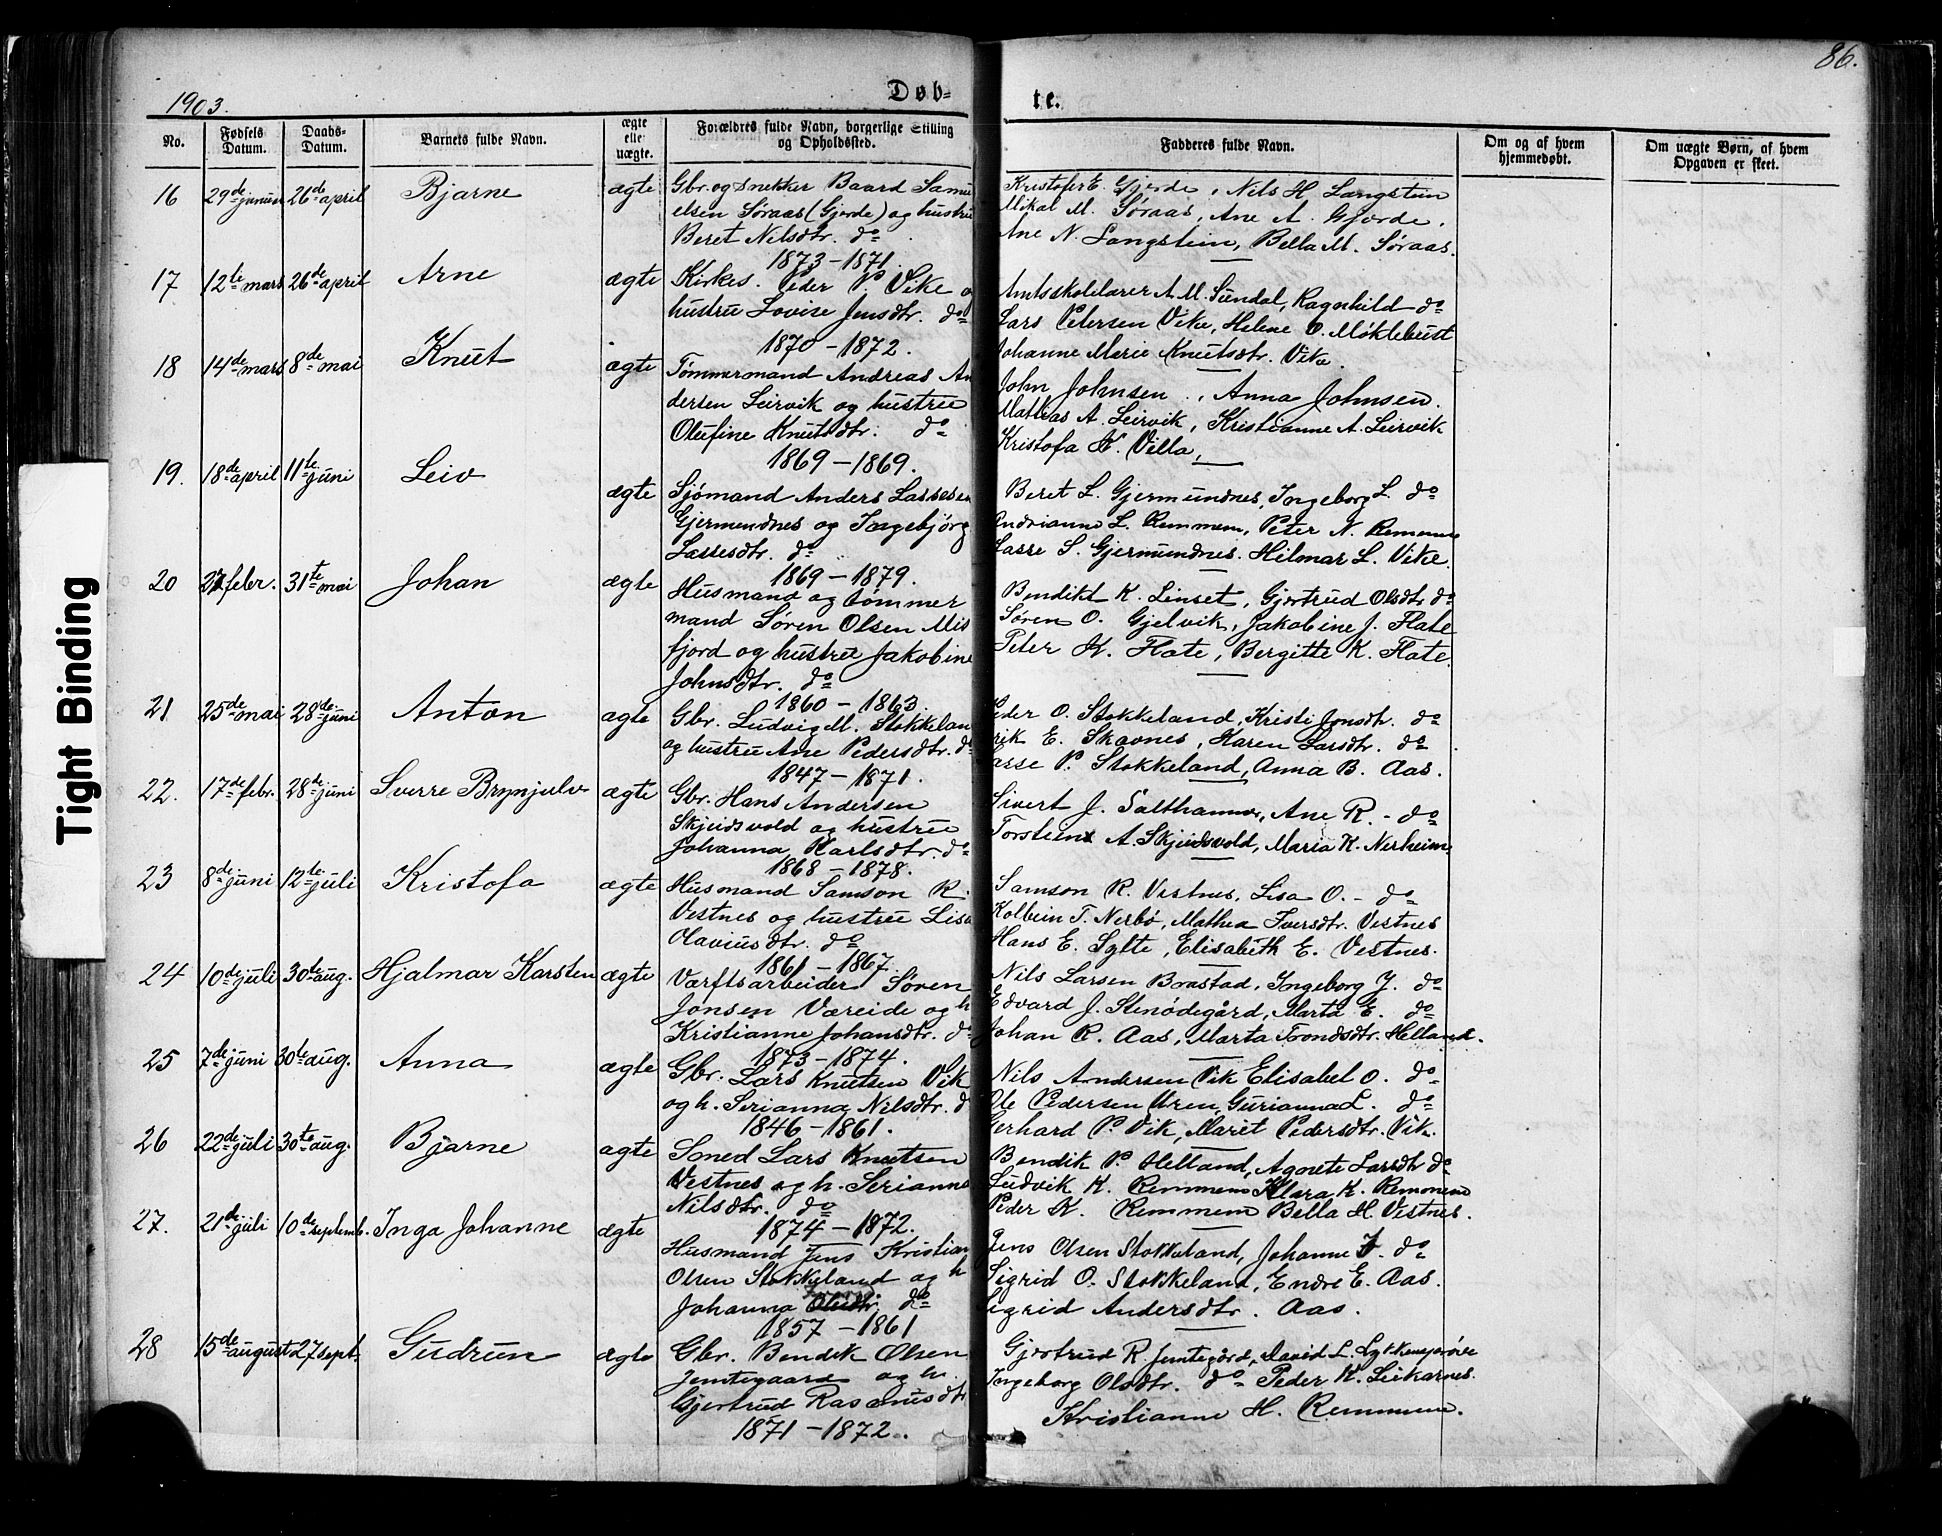 86.
1903.
Døb-
te.
No.
Fødsels Datum.
Daabs- Datum.
Barnets fulde Navn.
ægte elle uægte.
Forældres fulde Navn, borgerlige Stilling og Opholdssted.
Fadderes fulde Navn.
Om og af hvem hjemmedøbt.
Om uægte Børn, af hvem Opgaven er skeet.
16 29de januar 26de april Bjarne ægte Gbr. og snekker Baard Samu Kristofer E. Gjerde, Nils H. Langstein
elsen Søraas (Gjerde) og hustru Mikal M. Søraas, Ane A. Gjerde,
Beret Nilsdtr. do Ane N. Langstein, Bella M. Søraas.
1873 - 1871.
17 12te mars 26de april Arne ægte Kirkes. Peder P. Vike o Amtsskolelærer A. M. Sundal, Ragnhild do
hustru Lovise Jensdtr. do Lars Petersen Vike, Helene O. Møklebust
1870 - 1872. Johanne Marie Knutsdtr. Vike.
18 14de mars 8de mai Knut ægte Tømmermand Andreas An John Johnsen, Anna Johnsen.
dersen Leirvik og hustru Mathias A. Leirvik, Kristianne A. Leirvik
Olufine Knutsdtr. do Kristofa K. Villa,
1869 - 1869.
19. 18de april 11te juni Leiv ægte Sjømand Anders Lassesen Beret L. Gjermundnes, Ingeborg L. do
Gjermundnes og Ingebjørg Andrianne L. Remmem, Peter N. Remmem
Lassesdtr. do Lasse S. Gjermundnes. Hilmar L. Vike.
1869 - 1879.
20 27 febr. 31te mai Johan ægte Husmand og tømmer Bendikt K. Linset, Gjertrud Olsdtr do
mand Søren Olsen Mis Søren O. Gjelvik, Jakobine J. Flate
fjord og hustru Jakobine Peter K. Flate, Bergitte K. Flate.
Johnsdtr. do
1860 - 1863.
21 25de mai 28de juni Anton ægte Gbr. Ludvig M. Stokkelan Peder O. Stokkeland, Kristi Jonsdtr. do
og hustru Ane Pedersdtr. do rik E. Skavnes, Karen Larsdtr. do
1847 - 1871. asse P. Stokkeland, Anna B. Aas.
22. 17de febr. 28de juni Sverre Brynjulv ægte Gbr. Hans Andersen Sivert J. Salthammer, Ane R. - do
Skjeidsvold og hustru Torstein A. Skjeidsvold, Maria K. Nerheim
Johanna Karlsdtr. do
1868 - 1878.
23 8de juni 12te juli Kristofa ægte Husmand Samson R. Samson R. Vestnes, Lisa O. - do
Vestnes og hustru Lisa Kolbein T. Nerbø, Mathea Iversdtr. Vestnes
Olavius dtr. do Hans E. Sylte, Elisabeth E. Vestnes.
1861 - 1867.
24 10de juli 30te aug. Hjalmar Karsten ægte Værftsarbeider Søren Nils Larsen Brastad, Ingeborg J. do
Jonsen Væreide og h Edvard J. Stenødegård, Marta E. do
Kristianne Johansdtr. do Johan R. Aas, Marta Trondsdtr. Helland.
1873 - 1874.
25 7de juni 30te aug. Anna ægte Gbr. Lars Knutsen Vik Nils Andersen Vik Elisabet O. do
og h. Serianna Nilsdtr. d Ole Pedersen Uren, Gurianna L. do
1846 - 1861. Gerhard P. Vik, Maret Pedersdtr. Vik.
26 22de juli 30te aug. Bjarne ægte Smed Lars Knutsen Bendik P. Helland, Agnete Larsdtr do
Vestnes og h. Serianne Ludvik K. Remmem Klara K. Remmem
Nilsdtr. do Peder K. Remmem Bella H. Vestnes.
1874 - 1872.
27. 21de juli 10de septemb. Inga Johanne ægte Husmand Jens Kristian Jens Olsen Stokkeland, Johanne I. do
Olsen Stokkeland og h Sigrid O. Stokkeland, Endre E. Aas.
Johanna Olsdtr. do Sigrid Andersdtr. Aas.
1857 - 1861
28 15de august 27 sept. Gudrun ægte Gbr. Bendik Olsen Gjertrud R. Jemtegård, David L.
Jemtegaard og h. Ingeborg Olsdtr. do Peder K. Leikarnes.
Gjertrud Rasmusdtr Kristianne H. Remmem.
1871 - 1872.
Tight Binding